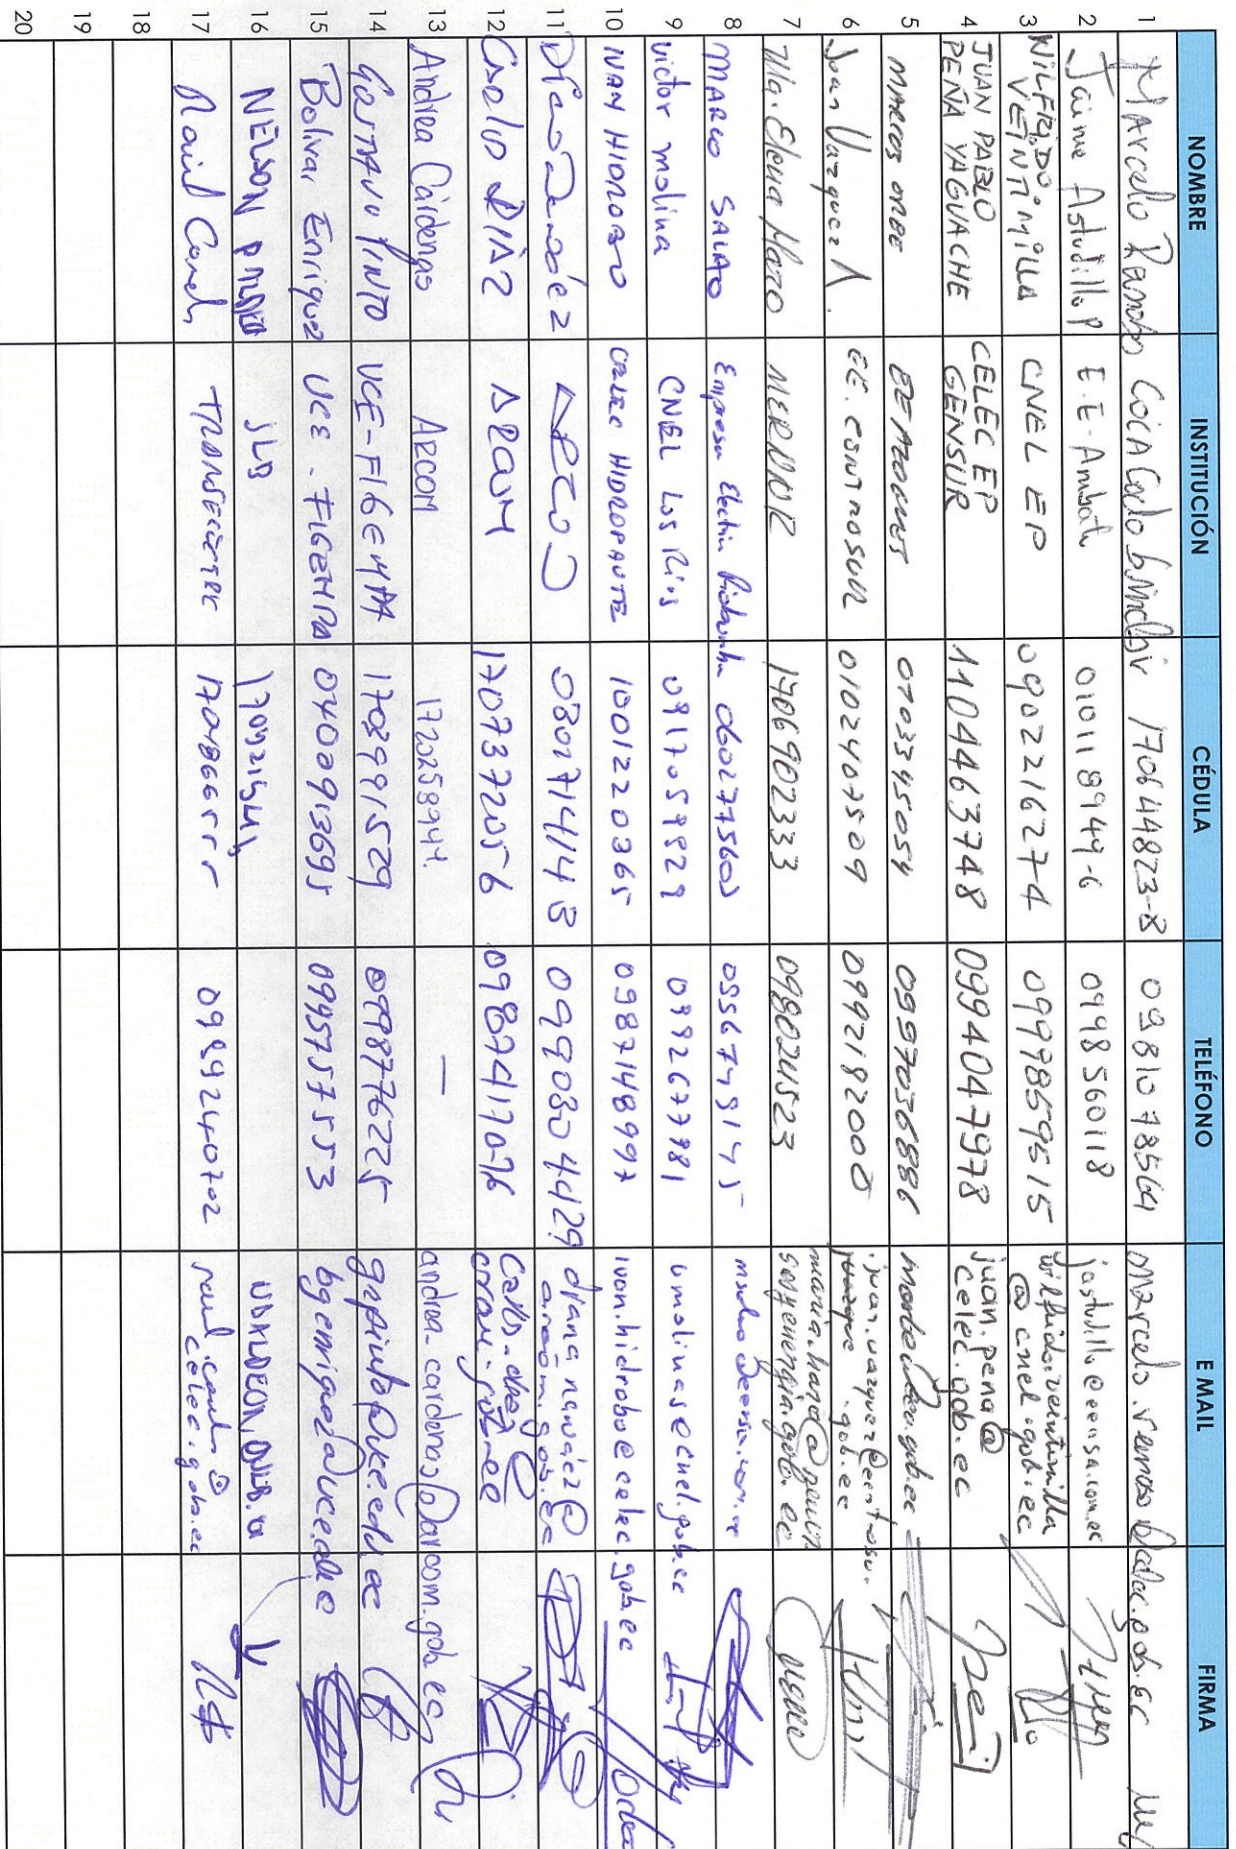 NOMBRE INSTITUCIÓN CÉDULA TELÉFONO E MAIL FIRMA
1 Marcelo 170644823-8
2 Jaime Astudillo P E.E. Ambato 010118944-6 0998560118 jastudillo@eeasa.com.ec
3 WILFRIDO VEINTIMILLA CNEL EP 0902216274 0999859515 wilfrido.veintimilla
@cnel.gob.ec
4 JUAN PABLO
PEÑA YAGUACHE CELEC EP
GENSUR 1104463748 0994047978 juan.pena@
celec.gob.ec
5 MARCOS ORBE 0703345054 0997036886
6 Juan Vazquez A. EE. CENTROSUR 0102407509 0992182000 juan.vazquez@centrosur.
gob.ec
7 Ma. Elena Haro MERNNR 1706902333 0980241523 maria.haro@
ec
8 MARCO SALAO Empresa Electrica Riobamba
9 Victor molina CNEL Los Rios 0917059829 0992677981 vmolinas@cnel.gob.ec
10 IVAN HIDROBO CELEC HIDROPAUTE 1001220365 0987148997 ivan.hidrobo@celec.gob.ec
11 Diana Narváez ARCOM 0802714143 0990804429 diana.narvaez@
arcom.gob.ec
12 CARLOS DÍAZ ARCOM 1707372056 0987417076 carlos.diaz@
arcom.gob.ec
13 Andrea Cárdenas ARCOM 172025894 — andrea.cardenas@arcom.gob.ec
14 GUSTAVO PINTO UCE-FIGEMPA 1703991529 0998776225 gapinto@uce.edu.ec
15 Bolivar Enriquez UCE-FIGEMPA 0400913695 0995757553 bgenriquez@uce.edu.ec
16 NELSON
17 Raúl Canelos TRANSELECTRIC 0989240702 raul.canelos@
celec.gob.ec
18
19
20